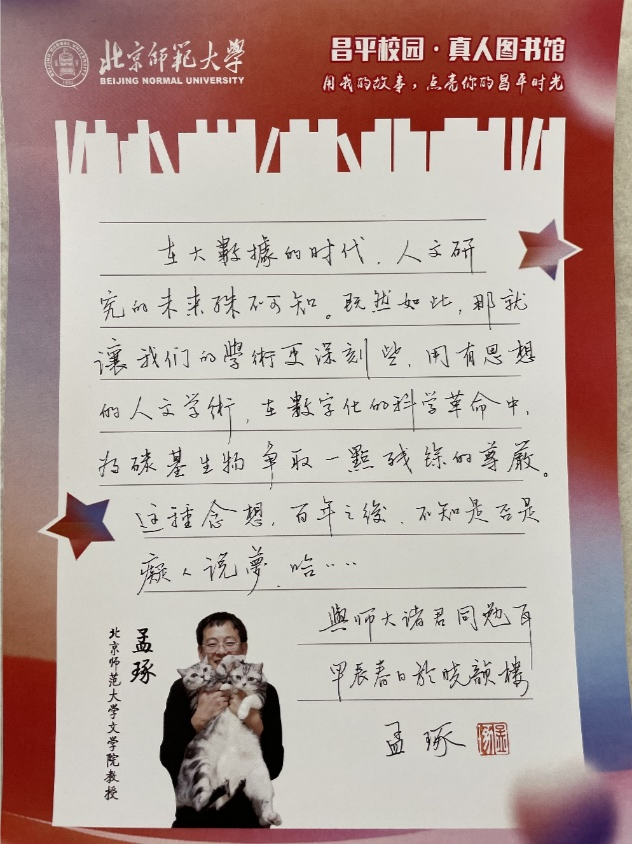 北京师范大学
BEIJING NORMAL UNIVERSITY
昌平校园·真人图书馆
用我的故事,点亮你的昌平时光
在大數據的时代,人文研
究的未来殊不可知。既然如此,那就
讓我们的學術更深刻些,用有思想
的人文学術,在數字化的科学革命中,
为碳基生物争取一點残馀的尊嚴。
这種念想,百年之後,不知是否是
癡人说夢,哈……
與师大諸君同勉耳
甲辰春日於晓韻樓
孟琢
孟琢
北京师范大学文学院教授